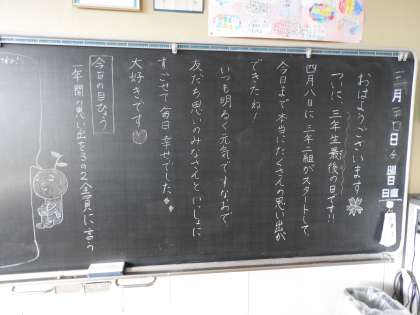 三月
日
曜日
日直
おはようございます
ついに三年生最後の日です!!
四月八日に三年二組がスタートして、
今日まで本当にたくさんの思い出が
できたね!
いつも明るく元気ですなおで
友だち思いのみなさんといっしょに
すごせて毎日幸せでした
大好きです
今日の目ひょう
一年間の思い出を3の2全員に言う